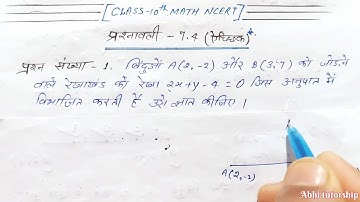 [CLASS-10th MATH NCERT]
प्रश्नावली - 7.4 (ऐच्छिक)*
प्रश्न संख्या - 1. बिंदुओं A(2,-2) और B(3,7) को जोड़ने
वाले रेखाखंड को रेखा 2x+y-4=0 जिस अनुपात में
विभाजित करती है उसे ज्ञात कीजिए।
A(2,-2)
Abhi tutorship